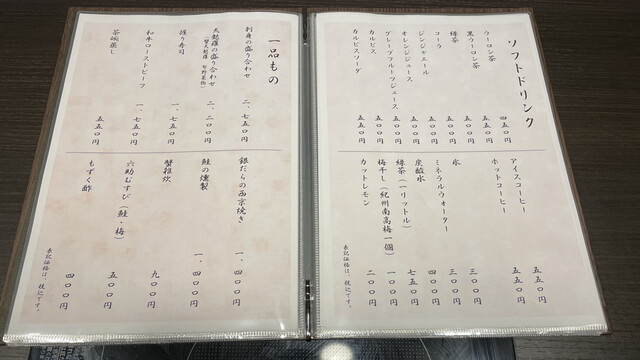 ソフトドリンク
ウーロン茶 四五〇円
黒ウーロン茶 五五〇円
緑茶 五五〇円
コーラ 五五〇円
ジンジャエール 五五〇円
オレンジジュース 五五〇円
グレープフルーツジュース 五五〇円
カルピス 五五〇円
カルピスソーダ 五五〇円
アイスコーヒー 五五〇円
ホットコーヒー 五五〇円
氷 三〇〇円
ミネラルウォーター 三〇〇円
炭酸水 四〇〇円
緑茶（一リットル） 七五〇円
梅干し（紀州南高梅一個） 一〇〇円
カットレモン 二〇〇円
表記価格は、税込です。
一品もの
刺身の盛り合わせ 二、七五〇円
天麩羅の盛り合わせ 二、二〇〇円
握り寿司 一、七五〇円
和牛ローストビーフ 一、七五〇円
茶碗蒸し 五五〇円
銀だらの西京焼き 一、四〇〇円
鮭の燻製 一、四〇〇円
蟹雑炊 九〇〇円
六助むすび（鮭・梅） 五〇〇円
もずく酢 四〇〇円
表記価格は、税込です。